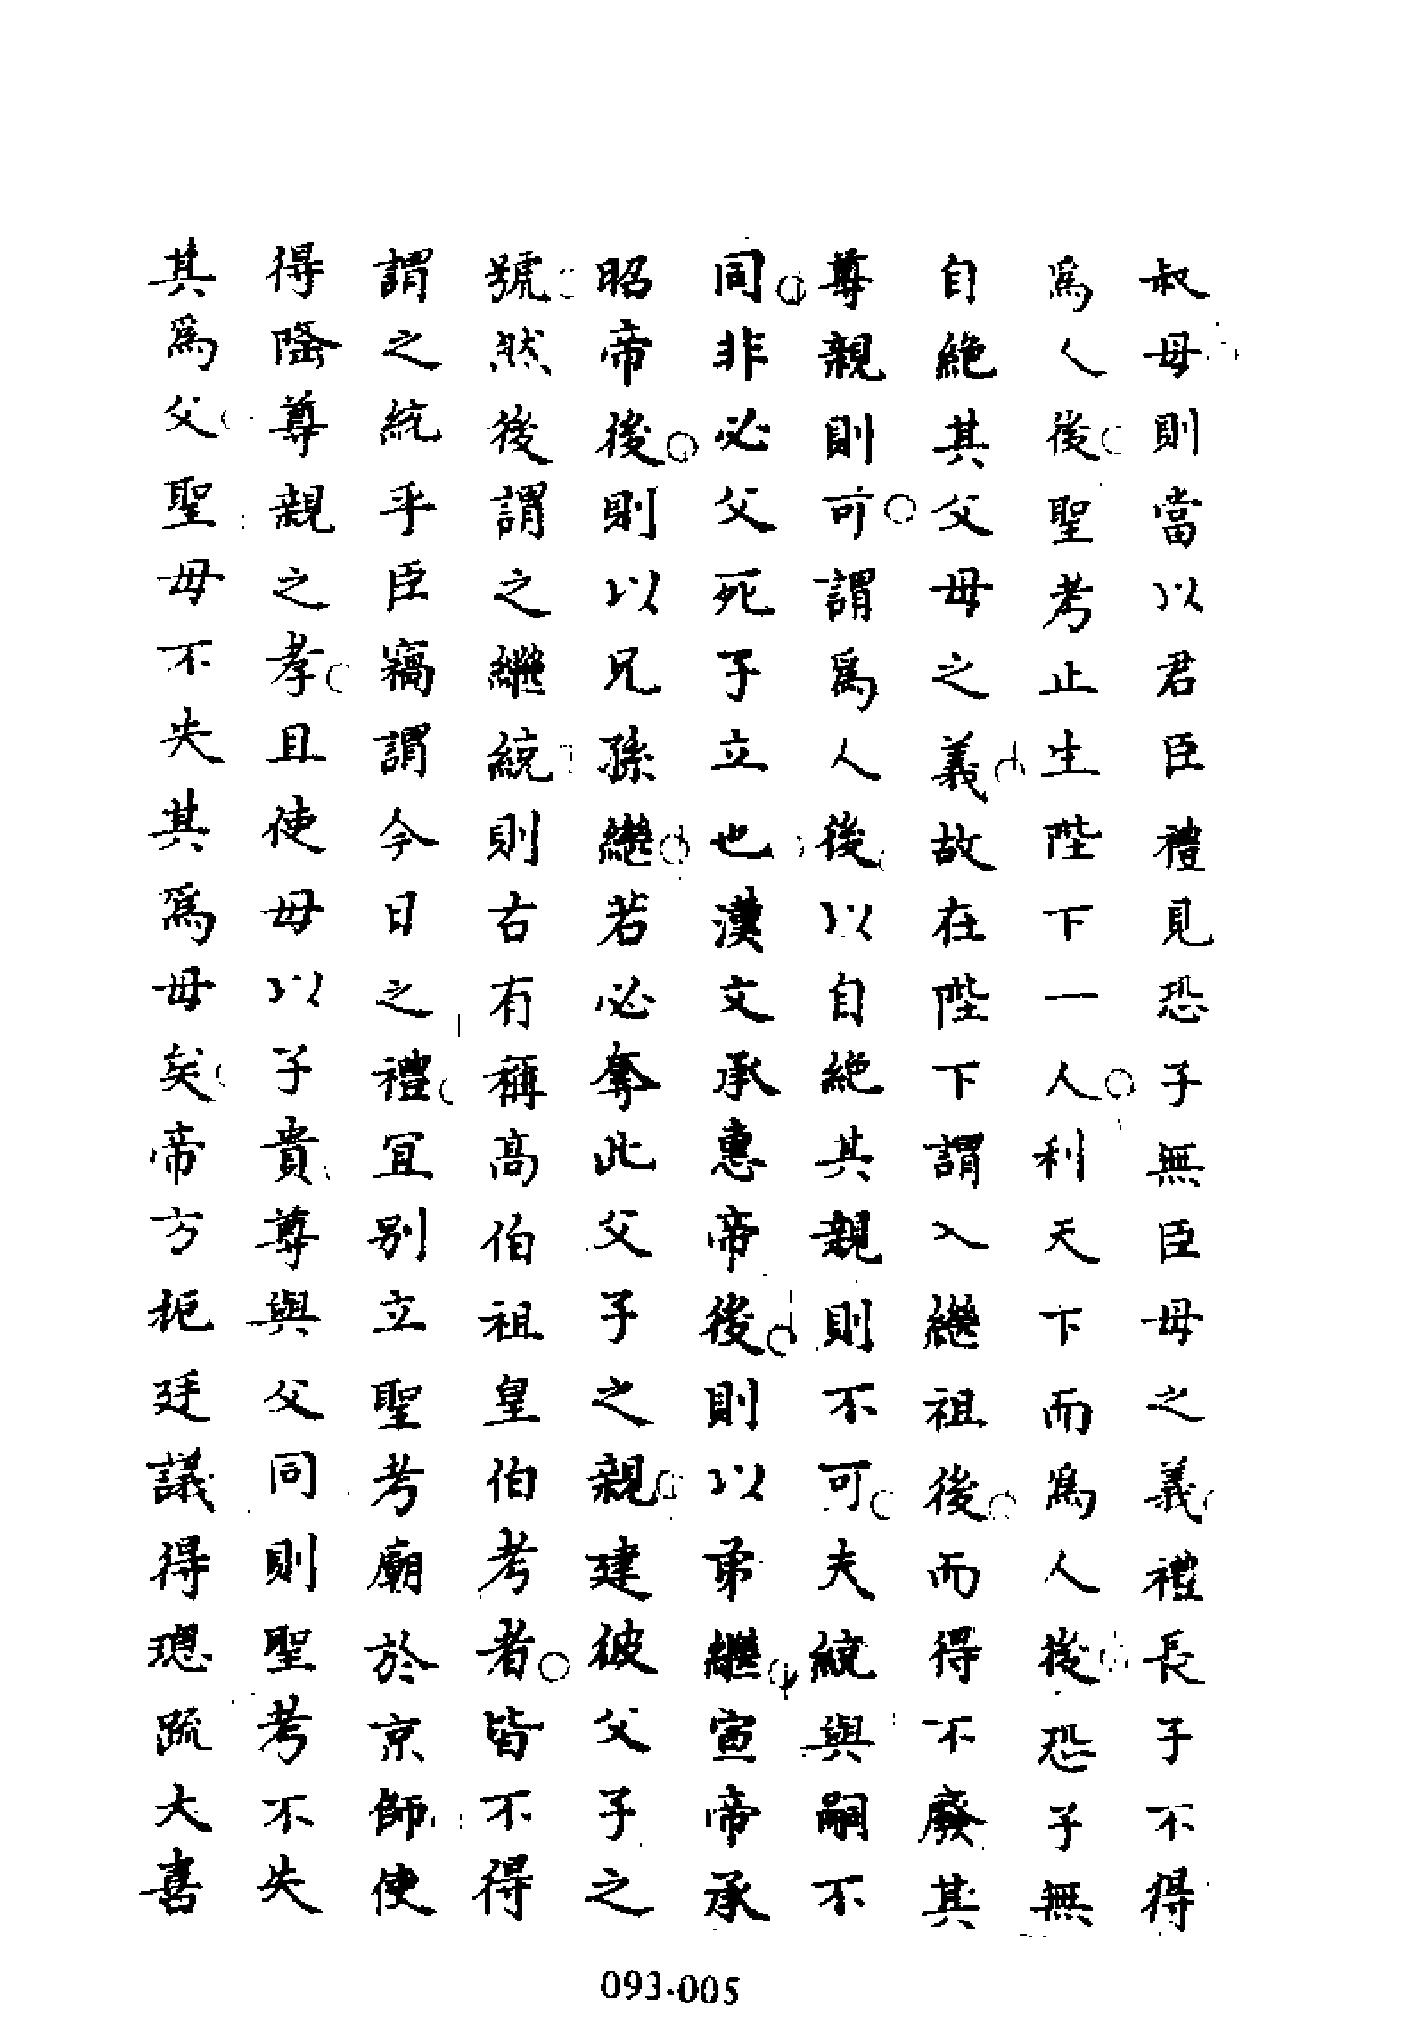 叔母則當以君臣禮見恐子無臣母之義禮長子不得
爲人後聖考止生陛下一人利天下而爲人後恐子無
自絶其父母之義故在陛下謂入繼祖後而得不廢其
尊親則可謂爲人後以自絶其親則不可夫統與嗣不
同非必父死子立也漢文承惠帝後則以弟繼宣帝承
昭帝後則以兄孫繼若必奪此父子之親建彼父子之
號然後謂之繼統則古有稱高伯祖皇伯考者皆不得
謂之統乎臣竊謂今日之禮宜别立聖考廟於京師使
得隆尊親之孝且使母以子貴尊與父同則聖考不失
其爲父聖母不失其爲母矣帝方扼廷議得璁疏大喜
093-005